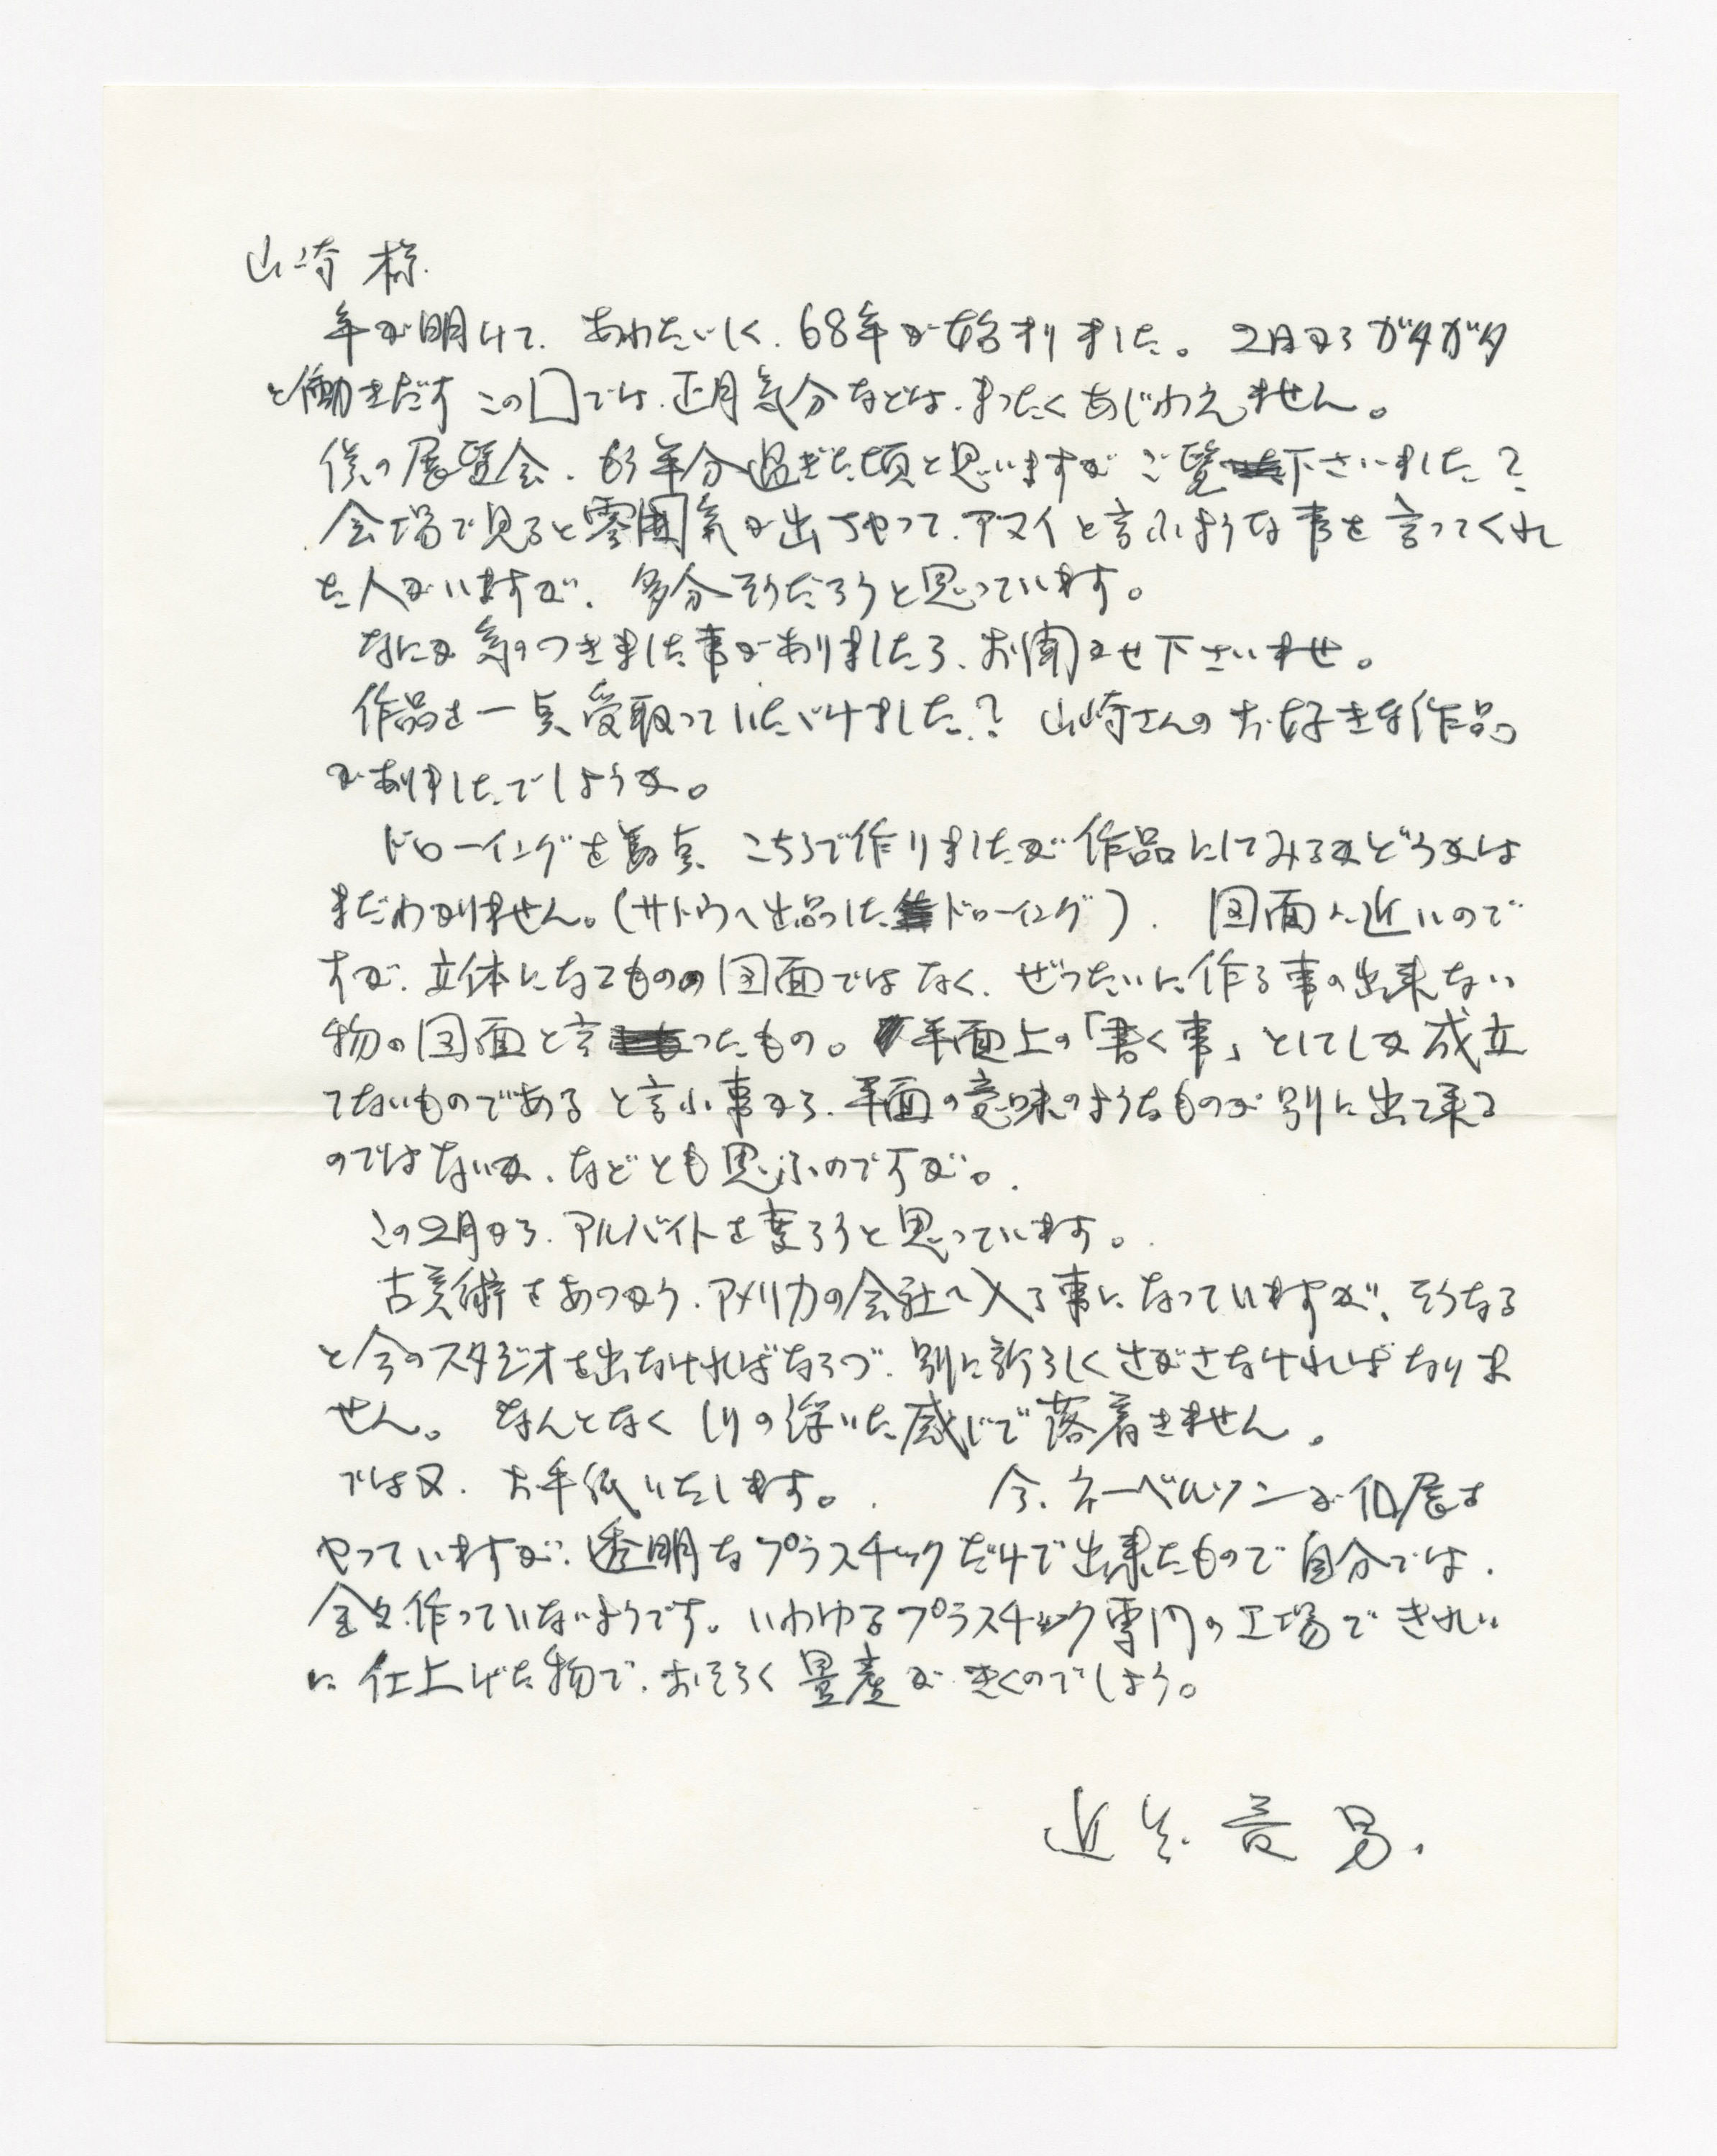 山崎 様.
年が明けて、あわたゞしく、68年が始まりました。2日からガタガタ
と働きだす この口では、正月気分などは、まったくあじわえません。
僕の展覧会、もう半分過ぎた頃と思いますが ご覧下さいました?
会場で見ると雰囲気が出ちやって、アマイと言ふような事を言ってくれ
た人がいますが、多分そうだろうと思っています。
なにか気のつきました事がありましたら、お聞かせ下さいませ。
作品を一点受取っていたゞけました? 山崎さんのお好きな作品
がありましたでしょうか。
ドローイングを 点、こちらで作りましたが作品にしてみるかどうかは
まだわかりません。(サトウへ出品したドローイング)、図面に近いので
すが、立体になるものの図面ではなく、ぜったいに作る事の出来ない
物の図面と言ったもの。平面上の「書く事」としてしか成立
てないものであると言ふ事から、平面の意味のようなものが別に出て来る
のではないか、などとも思ふのですが。
この2月から、アルバイトを変ろうと思っています。
古美術をあつかう、アメリカの会社へ入る事になっていますが、そうなる
と今のスタジオを出なければならづ、別に新らしくさがさなければなりま
せん。なんとなくしりの浮いた感じで落着きません。
では又、お手紙いたします。 今、ネーベルソンが個展を
やっていますが、透明なプラスチックだけで出来たもので自分では、
全々作っていないようです。いわゆるプラスチック専門の工場できれい
に仕上げた物で、おそらく量産がきくのでしょう。
近 男.